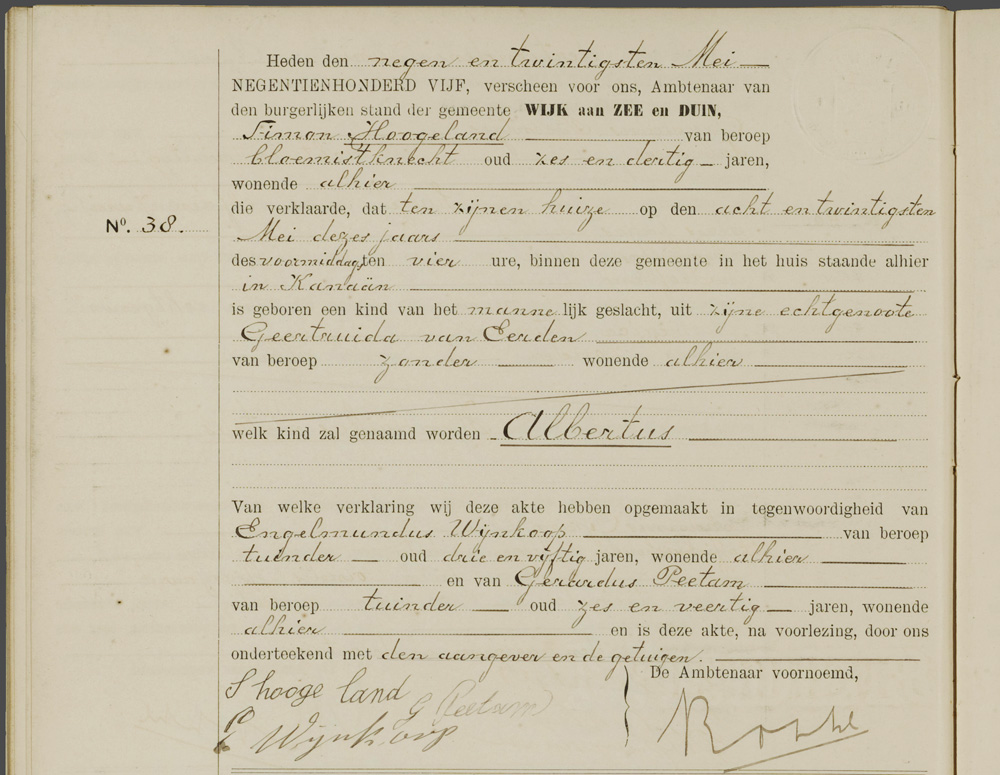 Heden den negen en twintigsten Mei
NEGENTIENHONDERD VIJF, verscheen voor ons, Ambtenaar van
den burgerlijken stand der gemeente WIJK aan ZEE en DUIN,
Simon Hoogeland van beroep
bloemistknecht oud zes en dertig jaren,
wonende alhier
Nº. 38.
die verklaarde, dat ten zijnen huize op den acht en twintigsten
Mei dezes jaars
des voormiddags ten vier ure, binnen deze gemeente in het huis staande alhier
in Kanaän
is geboren een kind van het mannelijk geslacht, uit zijne echtgenoote
Geertruida van Eerden
van beroep zonder wonende alhier
welk kind zal genaamd worden Albertus
Van welke verklaring wij deze akte hebben opgemaakt in tegenwoordigheid van
Engelmundus Wijnkoop van beroep
tuender oud drie en vijftig jaren, wonende alhier
en van Gerardus Peetam
van beroep tuinder oud zes en veertig jaren, wonende
alhier en is deze akte, na voorlezing, door ons
onderteekend met den aangever en de getuigen.
De Ambtenaar voornoemd,
S hooge land
G Peetam
E Wijnkoop